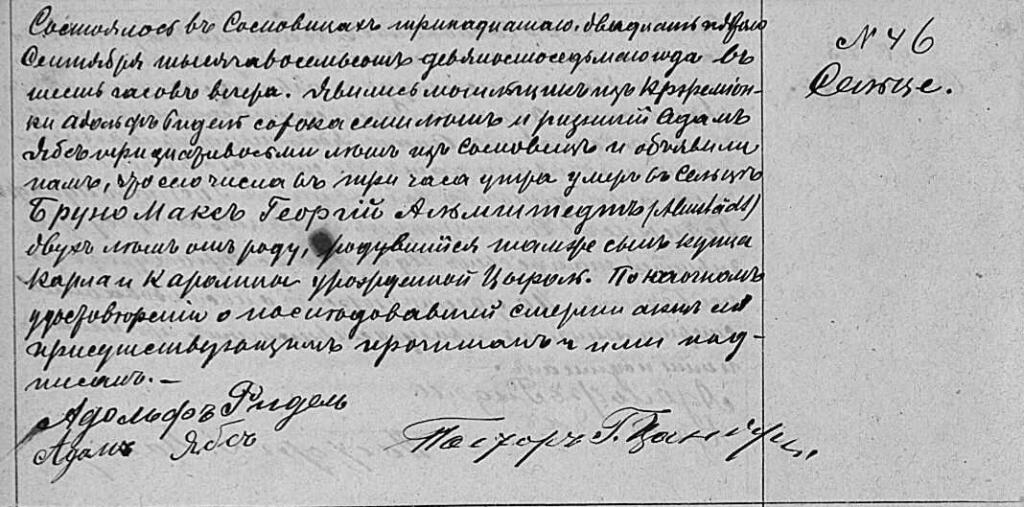 Состоялось въ Сосновицахъ тринадцатаго, двадцать пятаго
Сентября тысяча восемьсотъ девяностоседьмаго года въ
шесть часовъ вечера. Явились могильщикъ изъ
ки Адольфъ Ридель сорока семи лѣтъ и Адамъ
Ябсъ тридцативосьми лѣтъ изъ Сосновицъ и объявили
намъ, что сего числа въ три часа утра умеръ въ Сельцѣ
Бруно Максъ Георгій Альмштедтъ (Almstädt)
двухъ лѣтъ отъ роду, родившійся тамже сынъ купца
Карла и Каролины урожденной По наочномъ
удостовѣреніи о послѣдовавшей смерти актъ сей
присутствующимъ прочитанъ и ими под-
писанъ. —
Адольфъ Ридель
Адамъ Ябсъ
Пасторъ Г.
N 46
Сельце.